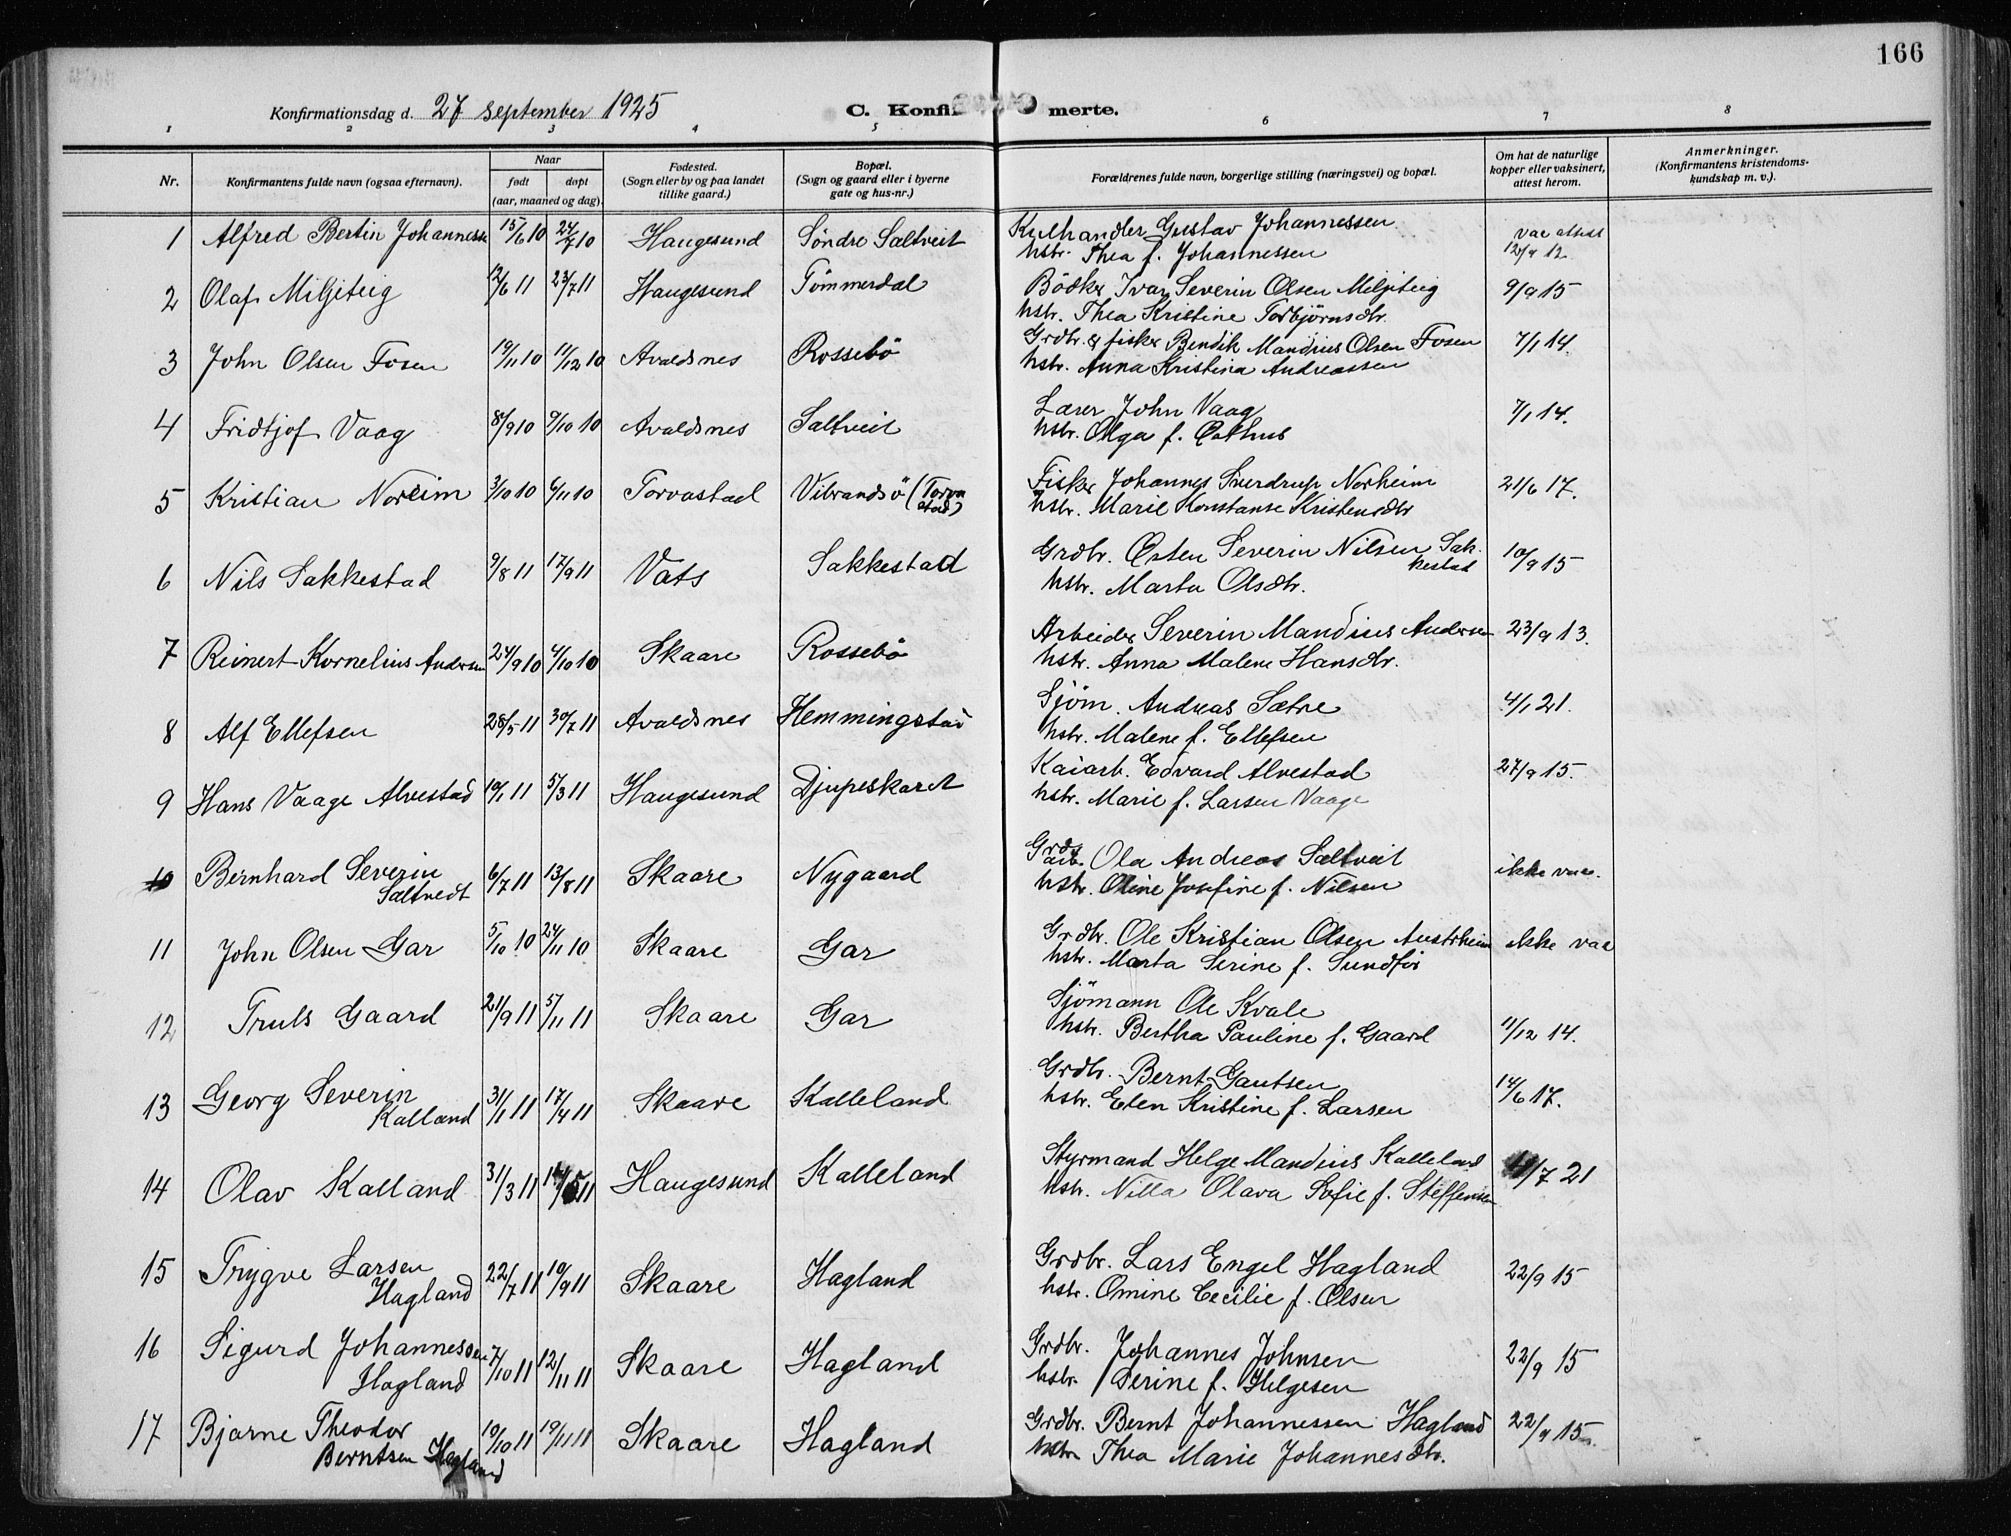 166
Konfirmationsdag d. 27 september 1925
C. Konfi merte.
1 2 3 4 5 6 7 8
Nr. Konfirmantens fulde navn (ogsaa efternavn). Naar født døpt (aar, maaned og dag). Fødested. (Sogn eller by og paa landet tillike gaard.) Bopæl. (Sogn og gaard eller i byerne gate og hus-nr.) Forældrenes fulde navn, borgerlige stilling (næringsvei) og bopæl. Om hat de naturlige kopper eller vaksinert, attest herom. Anmerkninger. (Konfirmantens kristendoms-kundskap m. v.).
1 Alfred Bertin Johannessen 15/6 10 24/7 10 Haugesund Söndre Saltveit Kulhandler Gustav Johannessen vac attest
hstr. Thea f. Johannessen 12/9 12
2 Olaf Miljeteig 12/6 11 23/7 11 Haugesund Tömmerdal Bödker Ivar Severin Olsen Miljeteig 9/9 15
hstr. Thea Kristine Torbjörnsdtr.
3 John Olsen Fosen 19/11 10 11/12 10 Avaldsnes Rossebö Grdbr. & fisker Bendik Mandius Olsen Fosen 7/1 14.
hstr. Anna Kristina Andreassen
4 Fridtjof Vaag 8/9 10 9/10 10 Avaldsnes Saltveit Lærer John Vaag 7/1 14.
hstr. Olga f.
5 Kristian Noreim 3/10 10 6/11 10 Torvastad Vibrandsö (Torva
stad)
Fisker Johannes Sverdrup Norheim 21/6 17.
hstr. Marie Konstanse Kristensdtr
6 Nils Sakkestad 9/8 11 17/9 11 Vats Sakkestad Grdbr. Østen Severin Nilsen Sak-
kestad 10/9 15
hstr. Marta Olsdtr.
7 Reinert Kornelius Andersen 24/9 10 4/10 10 Skaare Rossebö Arbeider Severin Mandius Andersen 23/9 13.
hstr. Anna Malene Hansdtr.
8 Alf Ellefsen 28/5 11 30/7 11 Avaldsnes Hemmingstad Sjöm. Andreas Sætre 4/1 21.
hstr. Malene f. Ellefsen
9 Hans Vaage Alvestad 10/1 11 5/3 11 Haugesund Djupeskaret Kaiarb. Edvard Alvestad 27/9 15.
hstr. Marie f. Larsen Vaage
10 Bernhard Severin
Saltvedt 6/7 11 13/8 11 Skaare Nygaard Grds
arb. Ola Andreas Saltveit ikke vacc.
hstr. Oline Josefine f. Nilsen
11 John Olsen Gar 5/10 10 24/11 10 Skaare Gar Grdbr. Ole Kristian Olsen Austrheim ikke vac
hstr. Marta Serine f. Sundför
12 Truls Gaard 21/9 11 5/11 11 Skaare Gar Sjömann Ole Kvale
hstr. Bertha Pauline f. Gaard 11/12 14.
13 Georg Severin
Kalland 31/1 11 17/4 11 Skaare Kalleland Grdbr. Bernt Gautsen 14/6 17.
hstr. Elen Kristine f. Larsen
14 Olav Kalland 31/3 11 14/5 11 Haugesund Kalleland Styrmand Helge Mandius Kalleland 4/7 21
hstr. Nilla Olava Sofie f. Steffensen
15 Trygve Larsen
Hagland 22/7 11 10/9 11 Skaare Hagland Grdbr. Lars Engel Hagland 22/9 15
hstr. Omine Cecilie f. Olsen
16 Sigurd Johannessen
Hagland 7/10 11 12/11 11 Skaare Hagland Grdbr. Johannes Johnsen 22/9 15
hstr. Serine f. Helgesen
17 Bjarne Theodor
Berntsen Hagland 19/10 11 19/11 11 Skaare Hagland Grdbr. Bernt Johannessen Hagland 22/9 15
hstr Thea Marie Johannesdtr.